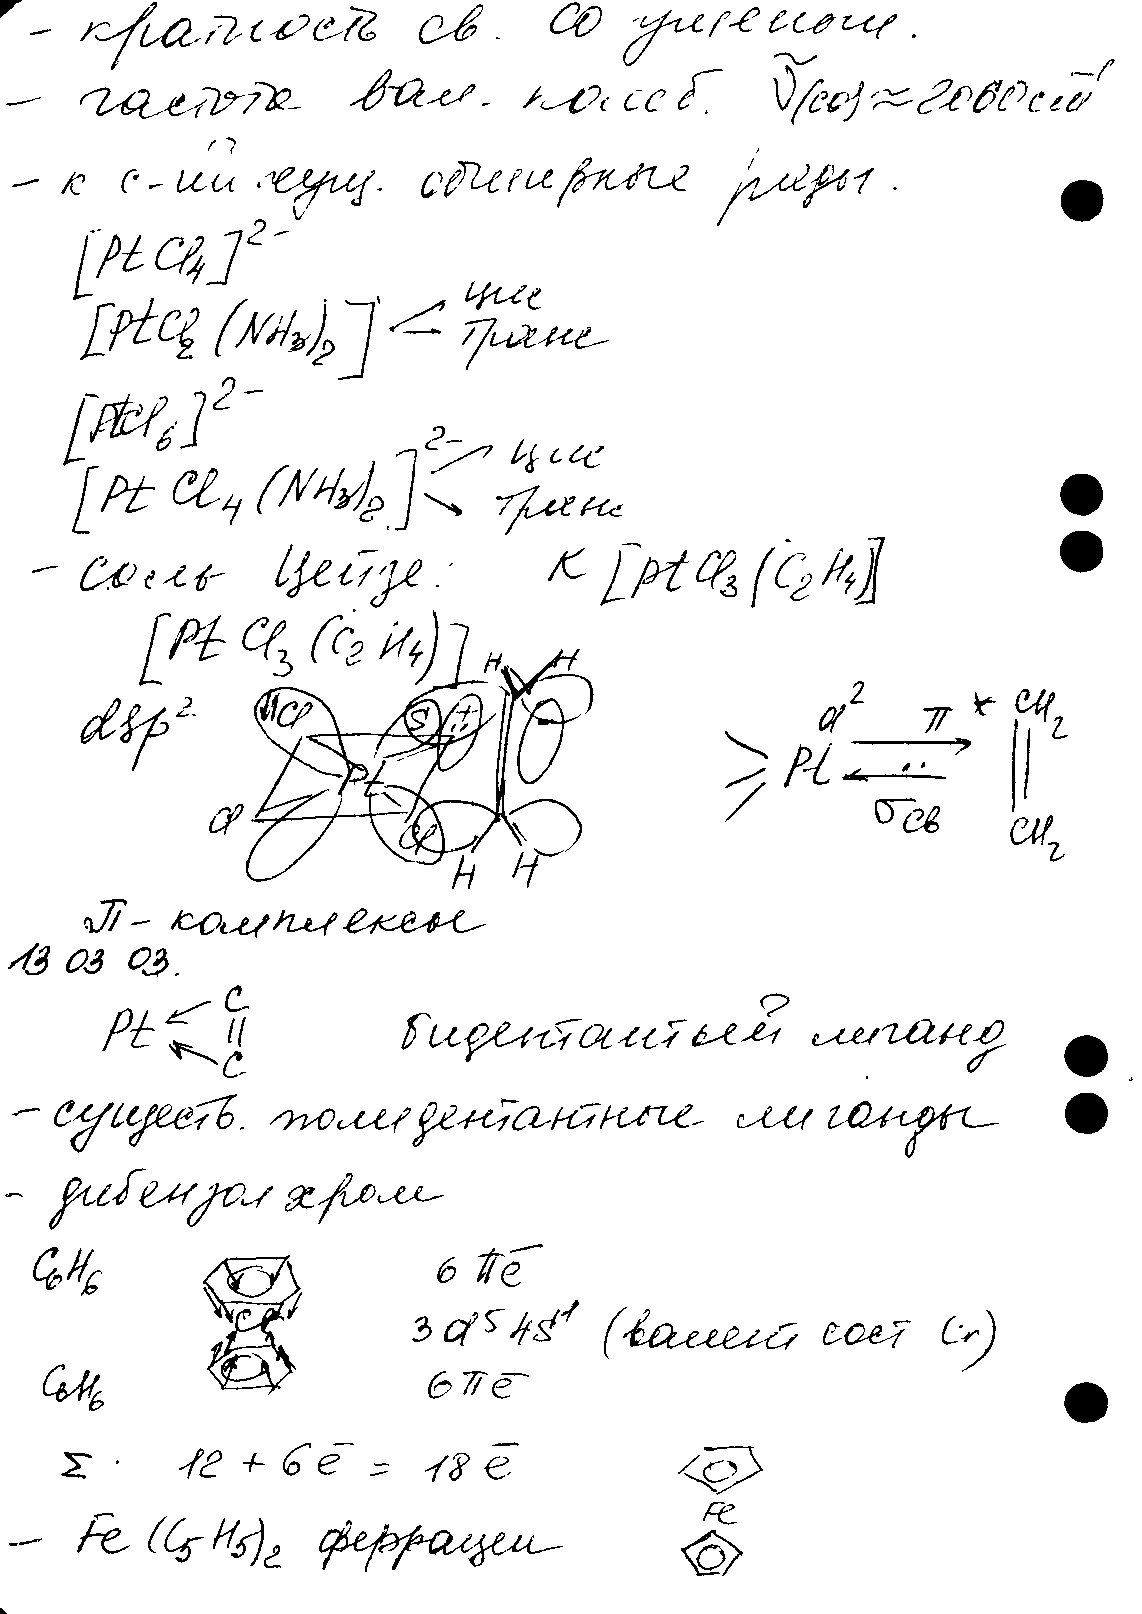 - кратность св. CO уменьш.
- частота вал. колеб. ν̃(CO)≈2060см⁻¹
- к с-ий сущ. обширные ряды.
[PtCl₄]²⁻
[PtCl₂(NH₃)₂] цис
транс
[PtCl₆]²⁻
[PtCl₄(NH₃)₂]²⁻ цис
транс
- соль Цейзе: K[PtCl₃(C₂H₄)]
[PtCl₃(C₂H₄)]
H H
dsp² Cl S Pt Cl Cl H H
d² π* CH₂
Pt
σсв CH₂
π-комплексы
13 03 03.
Pt C
C бидентантый лиганд
- существ. полидентантные лиганды
- дибензолхром
C₆H₆ 6πē
Cr 3d⁵4s¹ (валент сост Cr)
C₆H₆ 6πē
Σ. 12+6ē = 18ē
Fe
- Fe(C₅H₅)₂ ферроцен